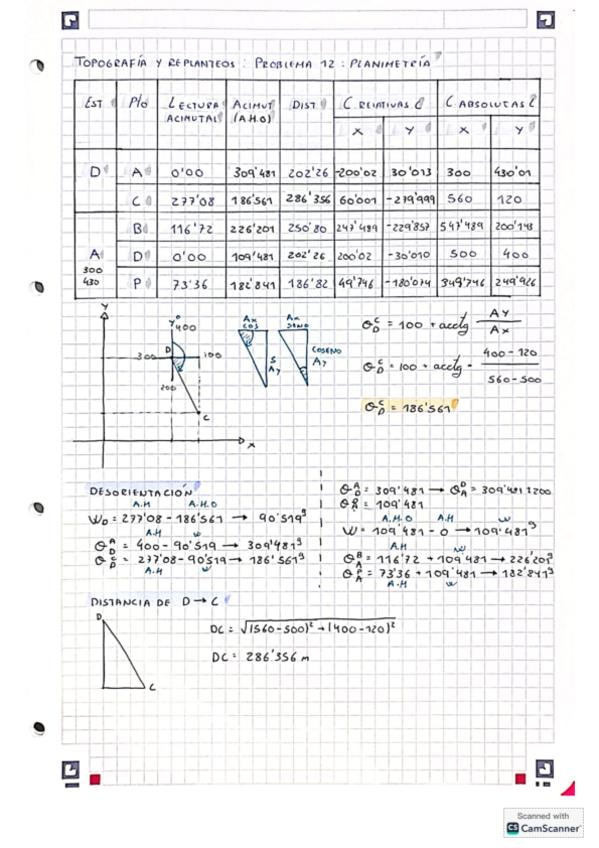 TOPOGRAFÍA Y REPLANTEOS : PROBLEMA 12 : PLANIMETRÍA
EST P/O LECTURA ACIMUTAL ACIMUT (A.H.O) DIST. C RELATIVAS C ABSOLUTAS
X Y X Y
D A 0'00 309'481 202'26 -200'02 30'013 300 430'01
C 277'08 186'561 286'356 60'001 -279'999 560 120
B 116'72 226'201 250'80 247'489 -229'857 547'489 200'143
A 300 430 D 0'00 109'481 202'26 200'02 -30'010 500 400
P 73'36 182'841 186'82 49'746 -180'074 349'746 249'926
Y
400
D
300
100
200
C
X
Ax
COS
S
Ay
Ax
SENO
COSENO
Ay
Θ_D^C = 100 + arctg Ay / Ax
Θ_D^C = 100 + arctg = 400 - 120 / 560 - 500
Θ_D^C = 186'561
DESORIENTACIÓN
A.H A.H.O
W_D = 277'08 - 186'561 → 90'519ᵍ
A.H W
Θ_D^A = 400 - 90'519 → 309'481ᵍ
Θ_D^C = 277'08 - 90'519 → 186'561ᵍ
A.H W
Θ_D^A = 309'481 → Θ_A^D = 309'481
= 109'481
A.H.O A.H W
W = 109'481 - 0 → 109'481ᵍ
A.H W
Θ_A^B = 116'72 + 109'481 → 226'201ᵍ
Θ_A^P = 73'36 + 109'481 → 182'841ᵍ
A.H W
DISTANCIA DE D → C
D
C
DC = √(560 - 500)² + (400 - 120)²
DC = 286'356 m
Scanned with
CS CamScanner